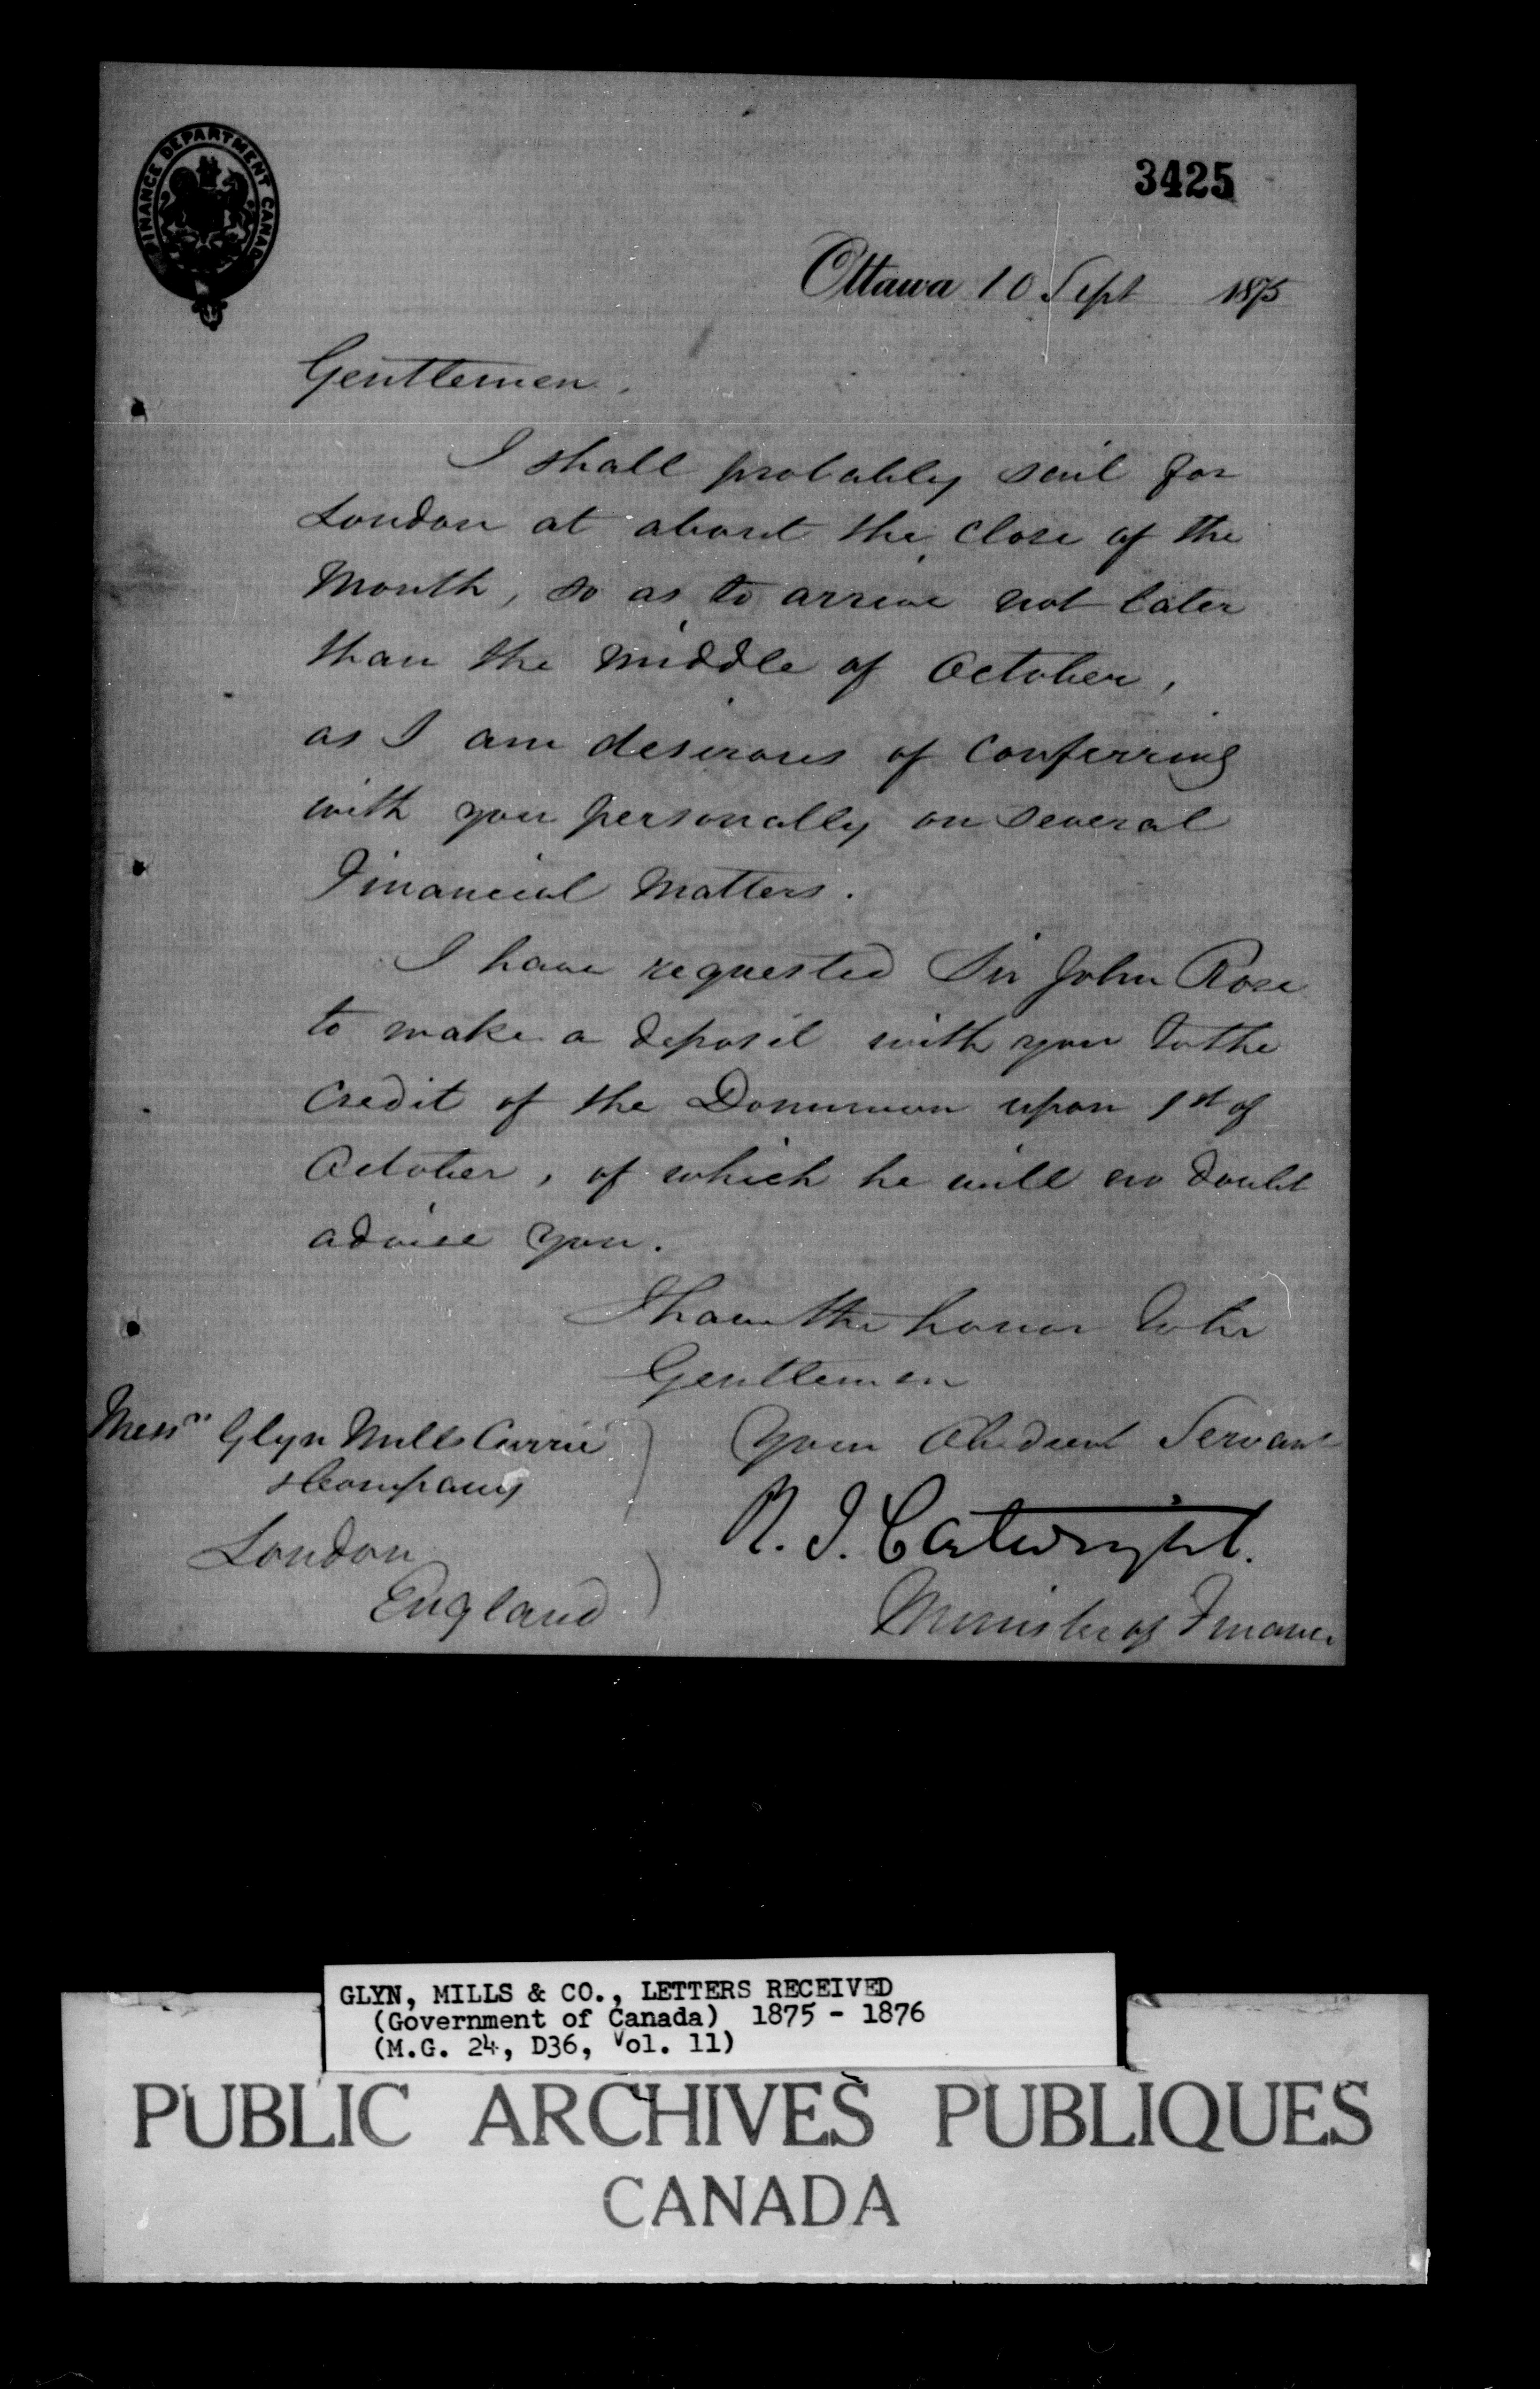 FINANCE DEPARTMENT CANADA
3425
Ottawa 10 Sept 1875
Gentlemen,
I shall probably sail for
London at about the close of the
Month, so as to arrive not later
than the middle of October,
as I am desirous of conferring
with you personally on several
Financial Matters.
I have requested Sir John Rose
to make a deposit with you to the
credit of the Dominion upon 1st of
October, of which he will no doubt
advise you.
I have the honor to be
Gentlemen
Your Obedient Servant
R. J. Cartwright.
Minister of Finance
Messrs Glyn Mills Currie
& Company
London
England
GLYN, MILLS & CO., LETTERS RECEIVED
(Government of Canada) 1875 - 1876
(M.G. 24, D36, Vol. 11)
PUBLIC ARCHIVES PUBLIQUES
CANADA